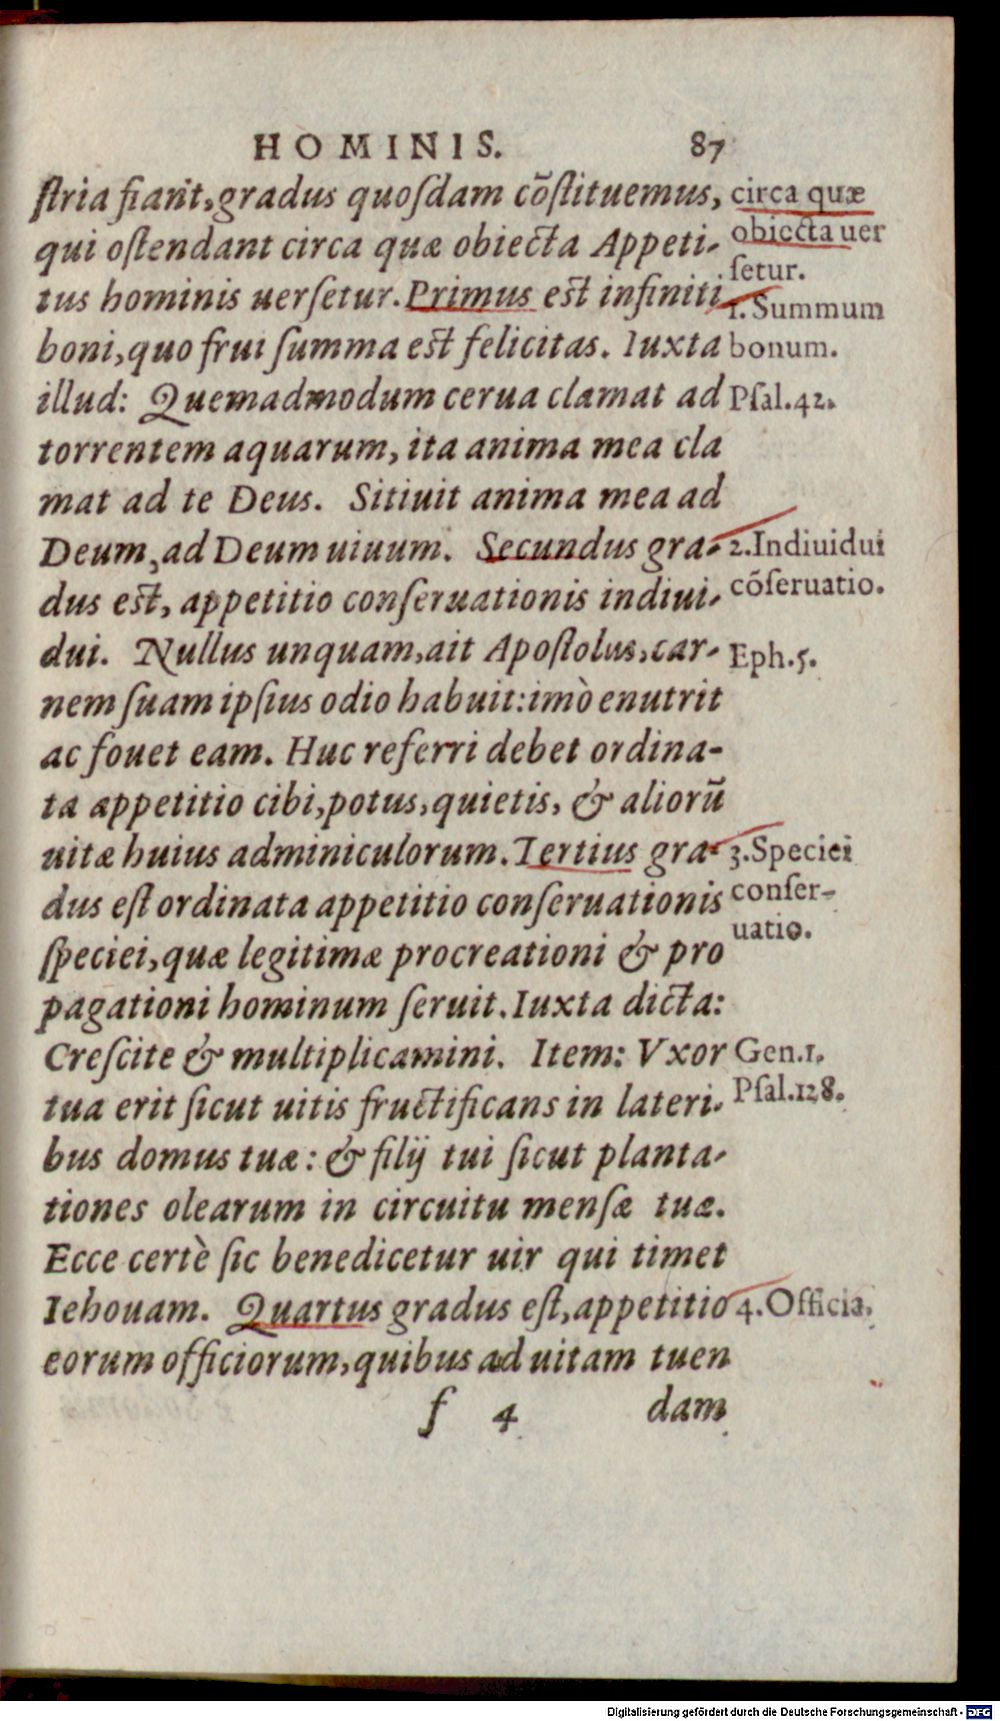 HOMINIS. 87
ſtria fiant, gradus quoſdam cõſtituemus,
qui oſtendant circa quæ obiecta Appeti-
tus hominis uerſetur. Primus eſt infiniti
boni, quo frui ſumma eſt felicitas. Iuxta
illud: Quemadmodum cerua clamat ad
torrentem aquarum, ita anima mea cla
mat ad te Deus. Sitiuit anima mea ad
Deum, ad Deum uiuum. Secundus gra-
dus eſt, appetitio conſeruationis indiui-
dui. Nullus unquam, ait Apoſtolus, car-
nem ſuam ipſius odio habuit: imò enutrit
ac fouet eam. Huc referri debet ordina-
ta appetitio cibi, potus, quietis, & aliorũ
uitæ huius adminiculorum. Tertius gra-
dus eſt ordinata appetitio conſeruationis
ſpeciei, quæ legitimæ procreationi & pro
pagationi hominum ſeruit. Iuxta dicta:
Creſcite & multiplicamini. Item: Vxor
tua erit ſicut uitis fructificans in lateri-
bus domus tuæ: & filij tui ſicut planta-
tiones olearum in circuitu menſæ tuæ.
Ecce certè ſic benedicetur uir qui timet
Iehouam. Quartus gradus eſt, appetitio
eorum officiorum, quibus ad uitam tuen
f 4 dam
circa quæ
obiecta uer
ſetur.
1. Summum
bonum.
Pſal. 42.
2. Indiuidui
cõſeruatio.
Eph. 5.
3. Speciei
conſer-
uatio.
Gen. 1.
Pſal. 128.
4. Officia.
Digitalisierung gefördert durch die Deutsche Forschungsgemeinschaft - DFG